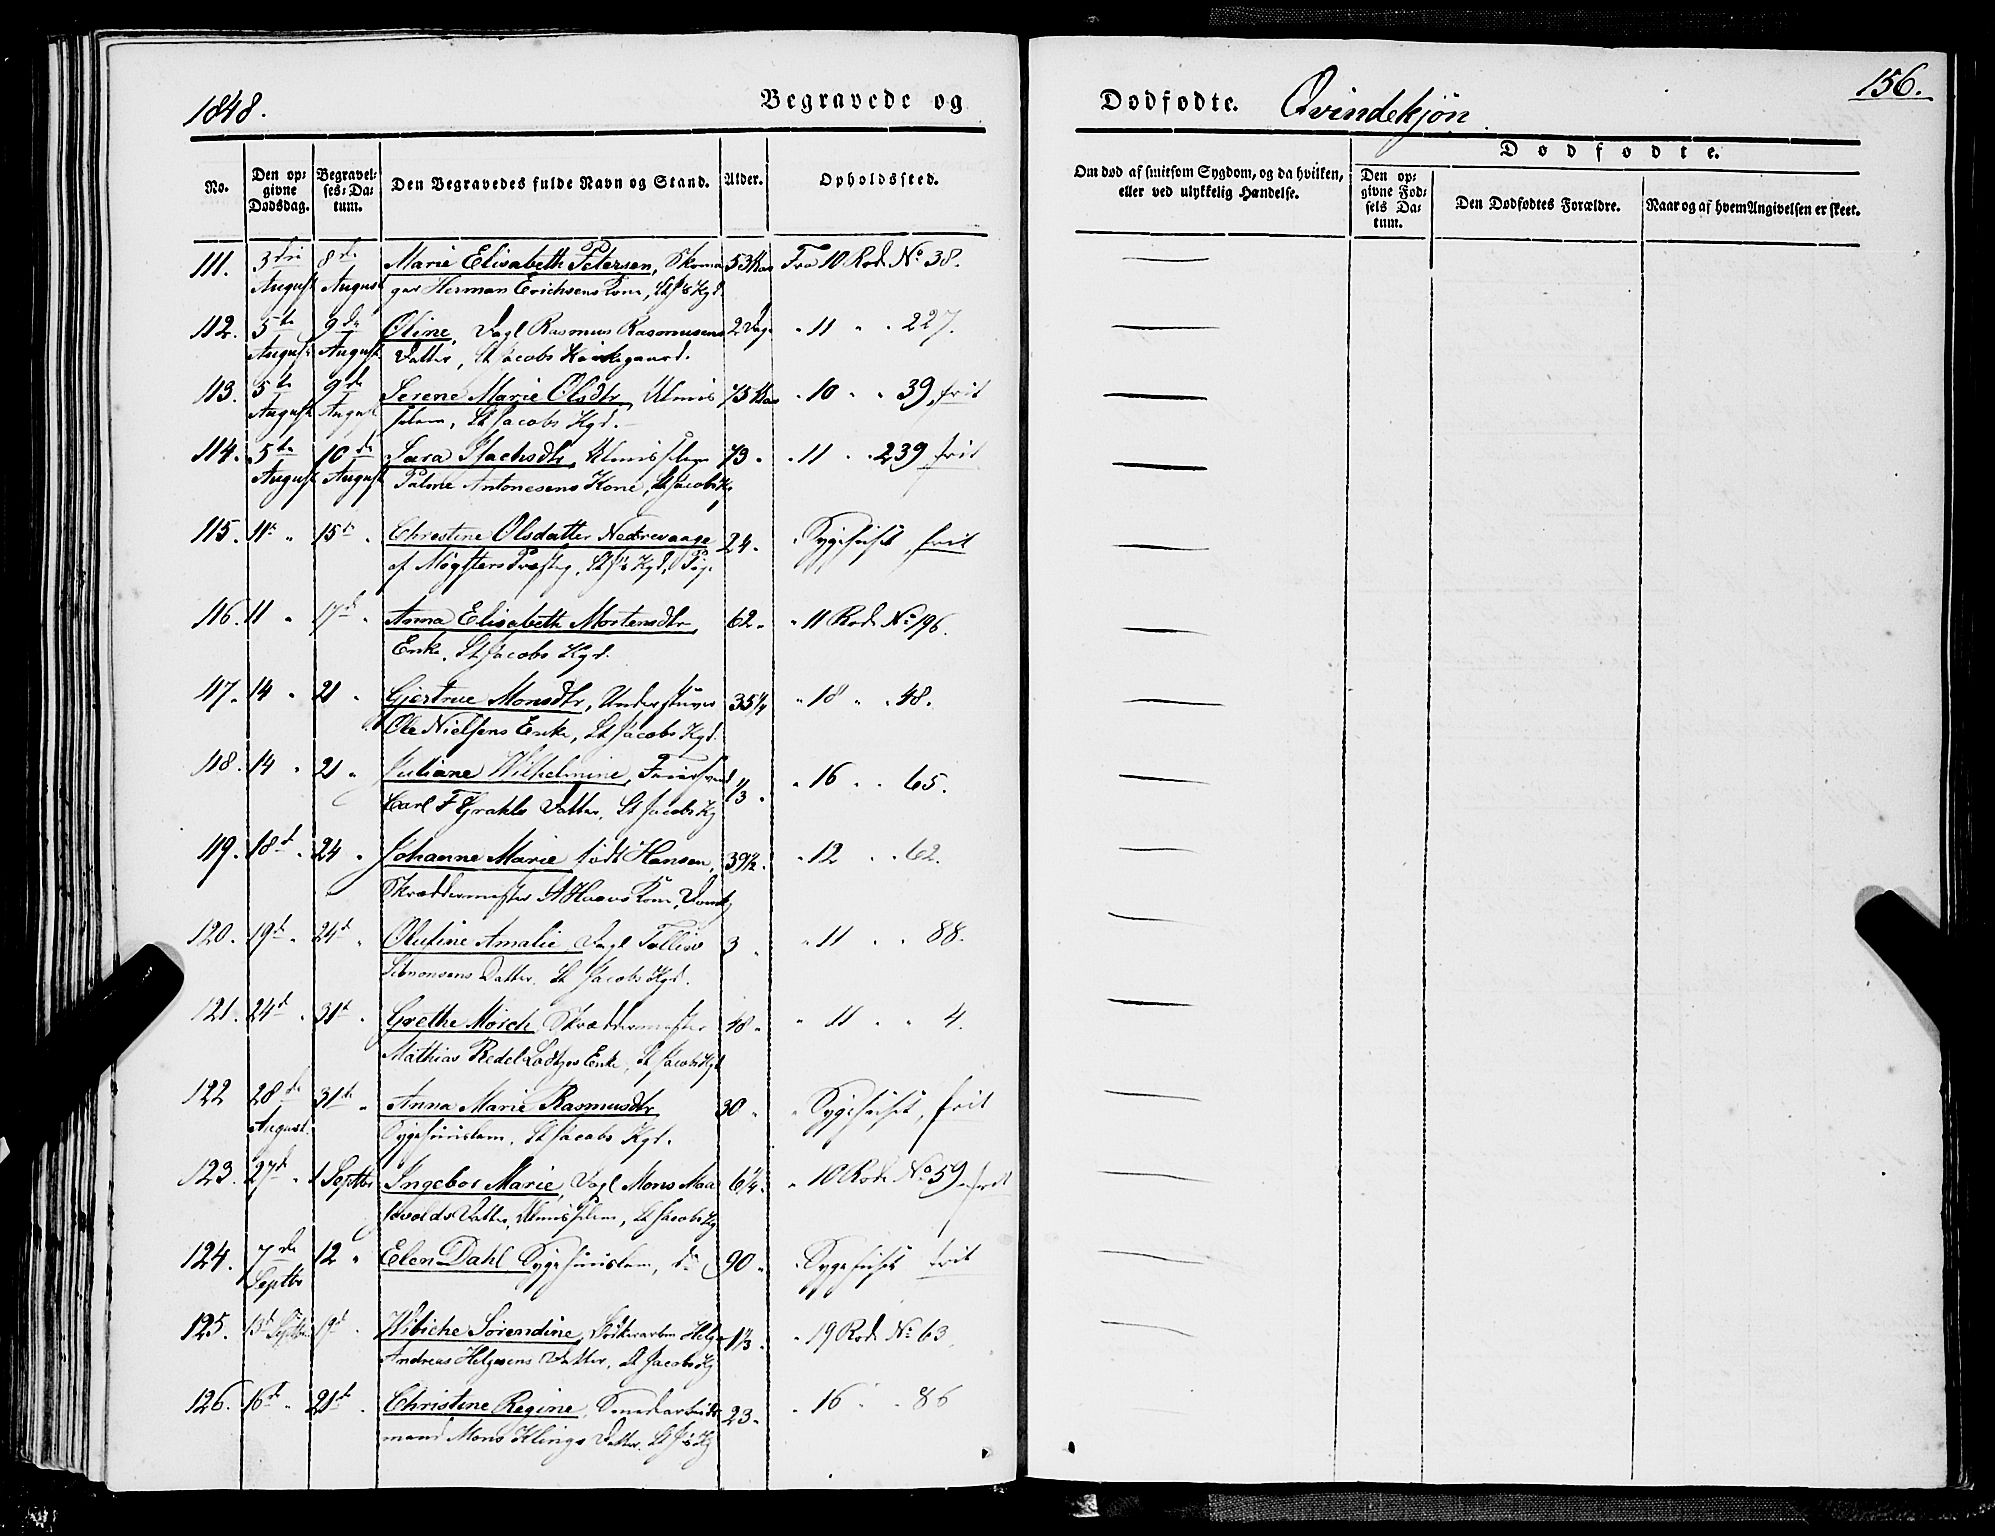 1848.
Begravede og
Dødfødte. Qvindekjön
156.
No.
Den opgivne Dødsdag.
Begravelses-Datum.
Den Begravedes fulde Navn og Stand.
Alder.
Opholdssted.
Om død af smitsom Sygdom, og da hvilken, eller ved ulykkelig Hændelse.
Dødfødte.
Den opgivne Fødsels Datum.
Den Dødfødtes Forældre.
Naar og af hvem Angivelsen er skeet.
111. 3die 8de Marie Elisabeth Petersen, Skoma 53 Aar Fra 10 Rode No 38.
August August ger Herman Erichsens Kone, St J's Kgd
112. 5te 9de Oline, Dagl Rasmus Rasmusens 2 Dage " 11 " " 227.
August August Datter, St Jacobs Kirkegaard.
113. 5te 9de Serene Marie Olsdtr, Almis 75 Aar " 10 " " 39, frit
August August selem, St Jacobs Kgd.
114. 5te 10de Sara Isachsdtr, Almisselem 73 " " 11 " " 239 frit
August August Antonesens Kone, St Jacobs K
115. 11te " 15de " Christine Olsdatter Nedrevaage 24 " " Sygehuset, frit
af Mögsters Præstg, St J's Kgd, Pige
116. 11 " 17de " Anna Elisabeth Mortensdtr, 62 " " 11 Rode No 196.
Enke, St Jacobs Kgd.
117. 14 " 21 " Gjertrue Monsdtr, Understüver 35 1/4 " 18 " " 48.
Ole Nielsens Enke, St Jacobs Kgd.
118. 14 " 21 " Juliane Wilhelmine, 1/3 " " 16 " " 65.
Carl F Grahls Datter, St Jacobs Kg
119. 18de " 24 " Johanne Marie född Hansen, 39 1/2 " " 12 " " 62.
Skræddermester Kone, Domk
120. 19de " 24de " Olufine Amalie, Dagl Tollew 3 " " 11 " " 88.
Simonsens Datter, St Jacobs Kgd.
121. 24de " 31te " Grethe Mosch, Skræddermester 48 " " 11 " " 4.
Mathias Redel Enke, St Jacobs Kgd
122 28de 31te " Anna Marie Rasmusdtr 30 " " Sygehuset, frit
August. Sygehuuslem, St Jacobs Kgd.
123. 27de " 1 Septbr Ingebor Marie, Dagl Mons Maa 6 1/4 " " 10 Rode No 59, frit
Datter, Almisselem, St Jacobs Kg
124. 7de 12 " Elen Dahl Sygehuuslem, do 90 " " Sygehuset frit
Septbr
125. 13de Septbr 19de " Wibiche Sörendine, Helge 1 1/3 " " 19 Rode No 63.
Andreas Helgesens Datter, St Jacobs Kg
126. 16de " 21de " Christine Regine, Smedearbeids 23 " " 16 " " 86
mand Mons Klings Datter, St J's Kg